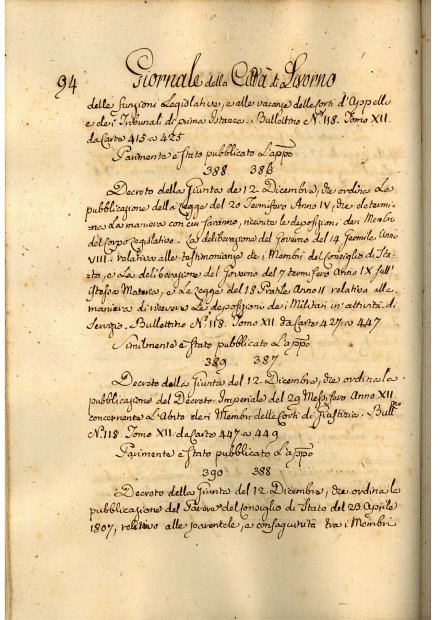 94 Giornale della Città di Livorno
delle funzioni Legislative, e alle vacanze delle Corti d'Appello
e dei Tribunali di prima Istanza. Bullettino N.º 118. Tomo XII.
da Carte 415 a 425
Parimente è stato pubblicato L'appo
388 386
Decreto della Giunta de 12. Dicembre, che ordina La
pubblicazione della Legge del 20 Termifero Anno IV, che determi=
na La maniera con cui saranno, ricevute le deposizioni dei Membri
del Corpo Legislativo. La deliberazione del Governo del 14 Germile Anno
VIII. relativa alle testimonianze dei Membri del Consiglio di Sta=
to, e La deliberazione del Governo del 7 termifero Anno IX sull'
istessa Materia, e La Legge del 18 Pratile Anno II relativa alle
maniera di ricevere Le deposizioni dei Militari in attività di
Servizio. Bullettino N.º 118. Tomo XII da Carte 427 a 447
Similmente è stato pubblicato L'appo
389 387
Decreto della Giunta del 12. Dicembre, che ordina la
pubblicazione del Decreto Imperiale del 29 Messifero Anno XII
concernente L'Abito dei Membri delle Corti di Giustizia. Bull.
N.º 118 Tomo XII. da Carte 447 a 449
Parimente è stato pubblicato L'appo
390 388
Decreto della Giunta del 12. Dicembre, che ordina la
pubblicazione del Parere del Consiglio di Stato del 23. Aprile
1807, relativo alle parentele, e consaguinità tra i Membri